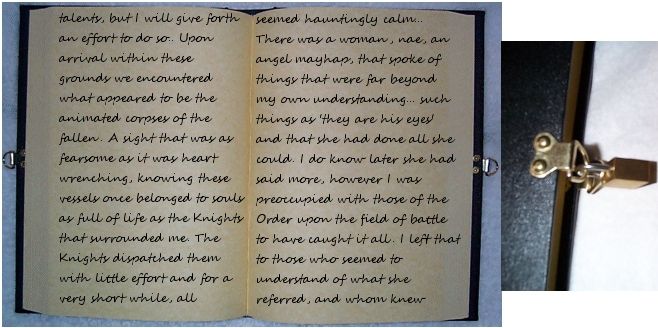 talents, but I will give forth
an effort to do so. Upon
arrival within these
grounds we encountered
what appeared to be the
animated corpses of the
fallen. A sight that was as
fearsome as it was heart
wrenching, knowing these
vessels once belonged to souls
as full of life as the Knights
that surrounded me. The
Knights dispatched them
with little effort and for a
very short while, all
seemed hauntingly calm...
There was a woman, nae, an
angel mayhap, that spoke of
things that were far beyond
my own understanding... such
things as 'they are his eyes'
and that she had done all she
could. I do know later she had
said more, however I was
preoccupied with those of the
Order upon the field of battle
to have caught it all. I left that
to those who seemed to
understand of what she
referred, and whom knew